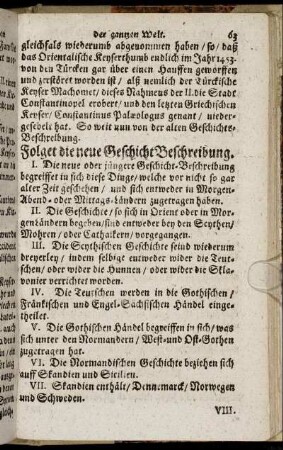 der gantzen Welt. 63
gleichfals wiederumb abgenommen haben / so / daß
das Orientalische Keyserthumb endlich im Jahr 1453.
von den Türcken gar über einen Hauffen geworffen
und zerstöret worden ist / alß nemlich der Türckische
Keyser Machomet / dieses Nahmens der II. die Stadt
Constantinopel erobert / und den letzten Griechischen
Keyser / Constantinus Palæologus genant / nieder-
gesebelt hat. So weit nun von der alten Geschichts-
Beschreibung.
Folget die neue Geschicht Beschreibung.
I. Die neue oder jüngere Geschicht-Beschreibung
begreiffet in sich diese Dinge / welche vor nicht so gar
alter Zeit geschehen / und sich entweder in Morgen-
Abend- oder Mittags-Ländern zugetragen haben.
II. Die Geschichte / so sich in Orient oder in Mor-
genländern begeben / sind entweder bey den Scythen /
Mohren / oder Cathaikern / vorgegangen.
III. Die Scythischen Geschichte seind wiederum
dreyerley / indem selbige entweder wider die Teut-
schen / oder wider die Hunnen / oder wider die Skla-
vonier verrichtet worden.
IV. Die Teutschen werden in die Gothischen /
Fränkischen und Engel-Sächsischen Händel einge-
theilet.
V. Die Gothischen Händel begreiffen in sich / was
sich unter den Normandern / West- und Ost-Gothen
zugetragen hat.
VI. Die Normandischen Geschichte beziehen sich
auff Skandien und Sicilien.
VII. Skandien enthält / Dennemarck / Norwegen
und Schweden.
VIII.